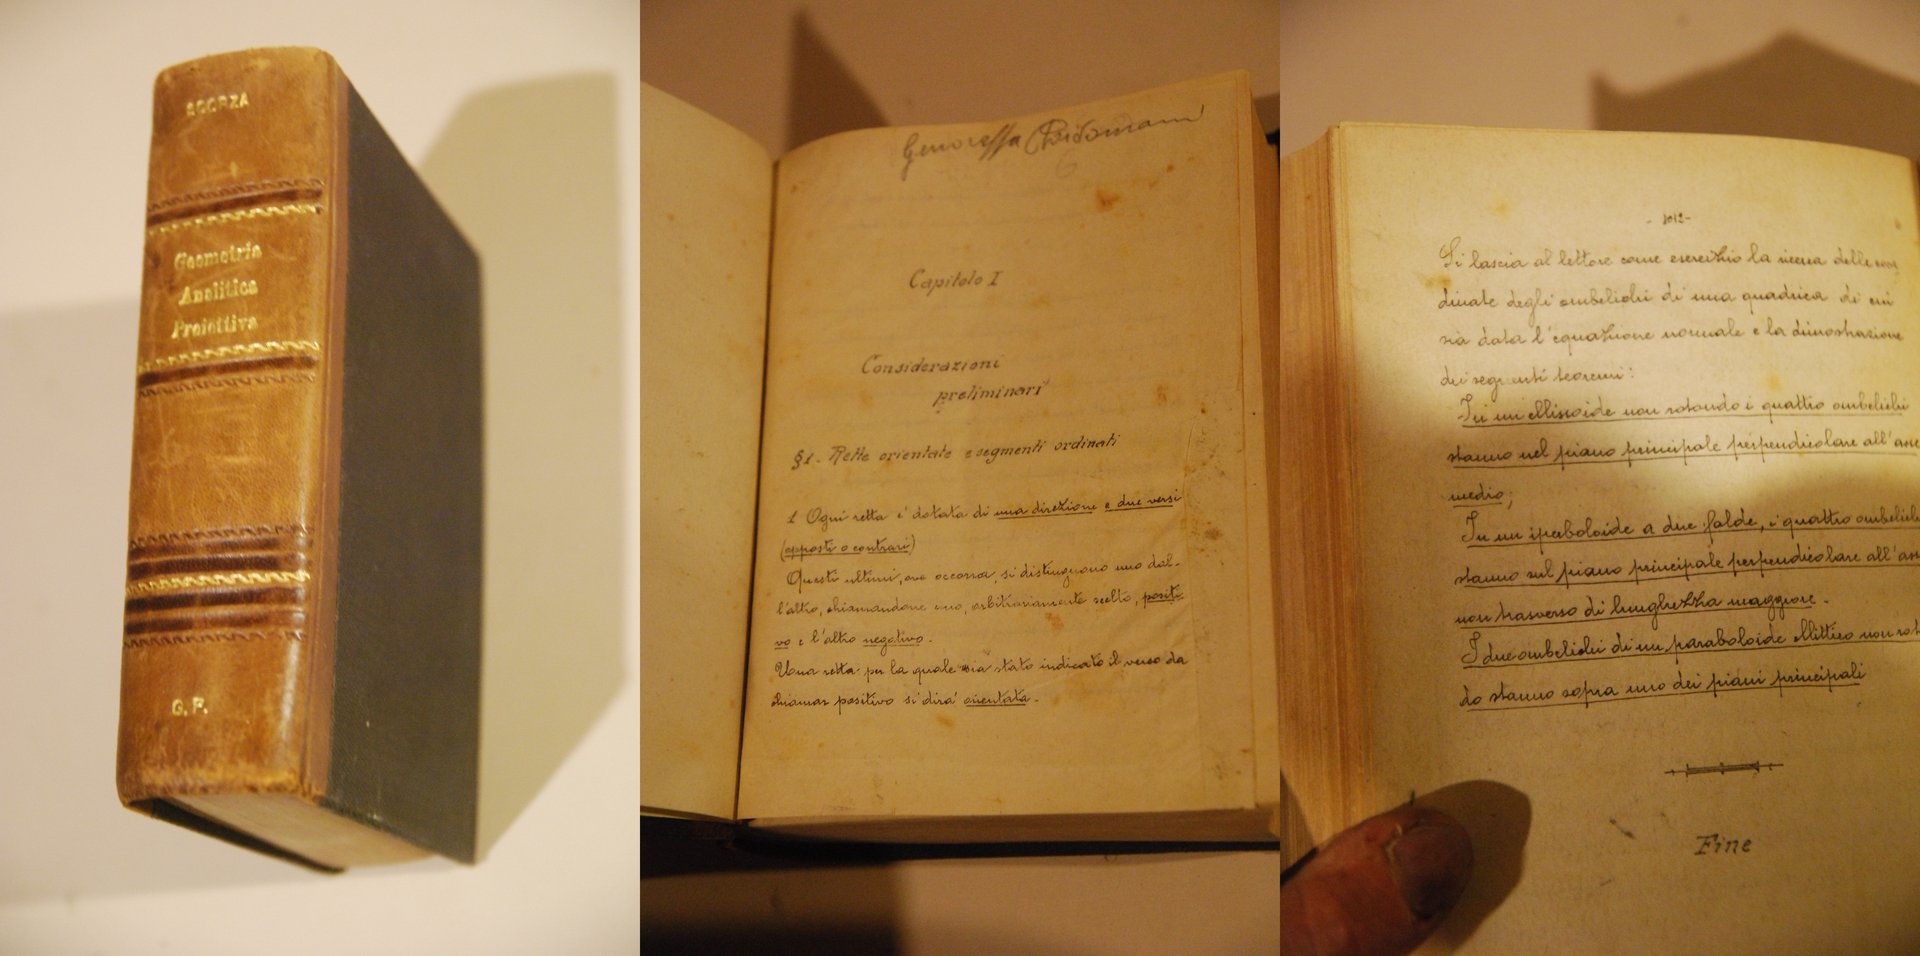 SCORZA
Geometria
Analitica
Proiettiva
G. P.
Capitolo I
Considerazioni
preliminari
§1. Rette orientate e segmenti ordinati
1 Ogni retta e' dotata di una direzione e due versi
(opposti o contrari)
Questi ultimi, ove occorra, si distinguono uno dal-
l'altro, chiamandone uno, arbitrariamente scelto, positi-
vo e l'altro negativo.
Una retta per la quale sia stato indicato il verso da
chiamar positivo si dirà orientata.
- 1012-
Si lascia al lettore come esercizio la ricerca delle coor
dinate degli ombelichi di una quadrica di cui
sia data l'equazione normale e la dimostrazione
dei seguenti teoremi:
In un'ellissoide non rotondo i quattro ombelichi
stanno nel piano principale perpendicolare all'asse
medio;
In un iperboloide a due falde, i quattro ombelichi
stanno sul piano principale perpendicolare all'asse
non trasverso di lunghezza maggiore.
I due ombelichi di un paraboloide ellittico non roton
do stanno sopra uno dei piani principali
Fine